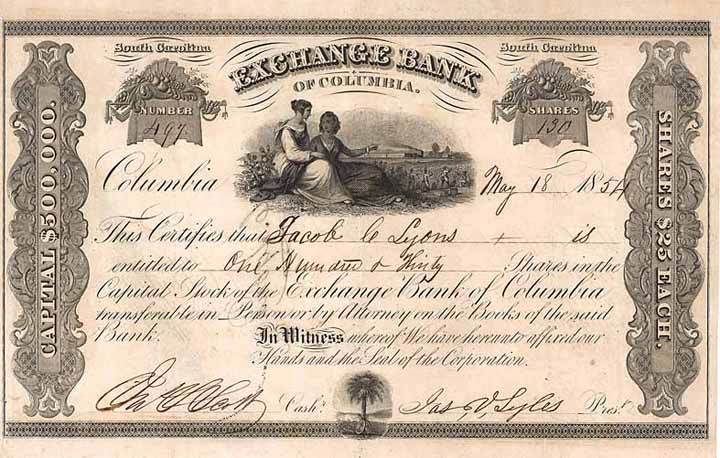 South Carolina
EXCHANGE BANK
South Carolina
OF COLUMBIA.
NUMBER
497
SHARES
130
CAPITAL $500,000.
SHARES $25 EACH.
Columbia May 18 1854
This Certifies that Jacob C Lyons + is
entitled to One Hundred & Thirty Shares in the
Capital Stock of the Exchange Bank of Columbia
transferable in Person or by Attorney on the Books of the said
Bank. In Witness whereof We have hereunto affixed our
Hands and the Seal of the Corporation.
Cash.r Jas V. Lyles Pres.t